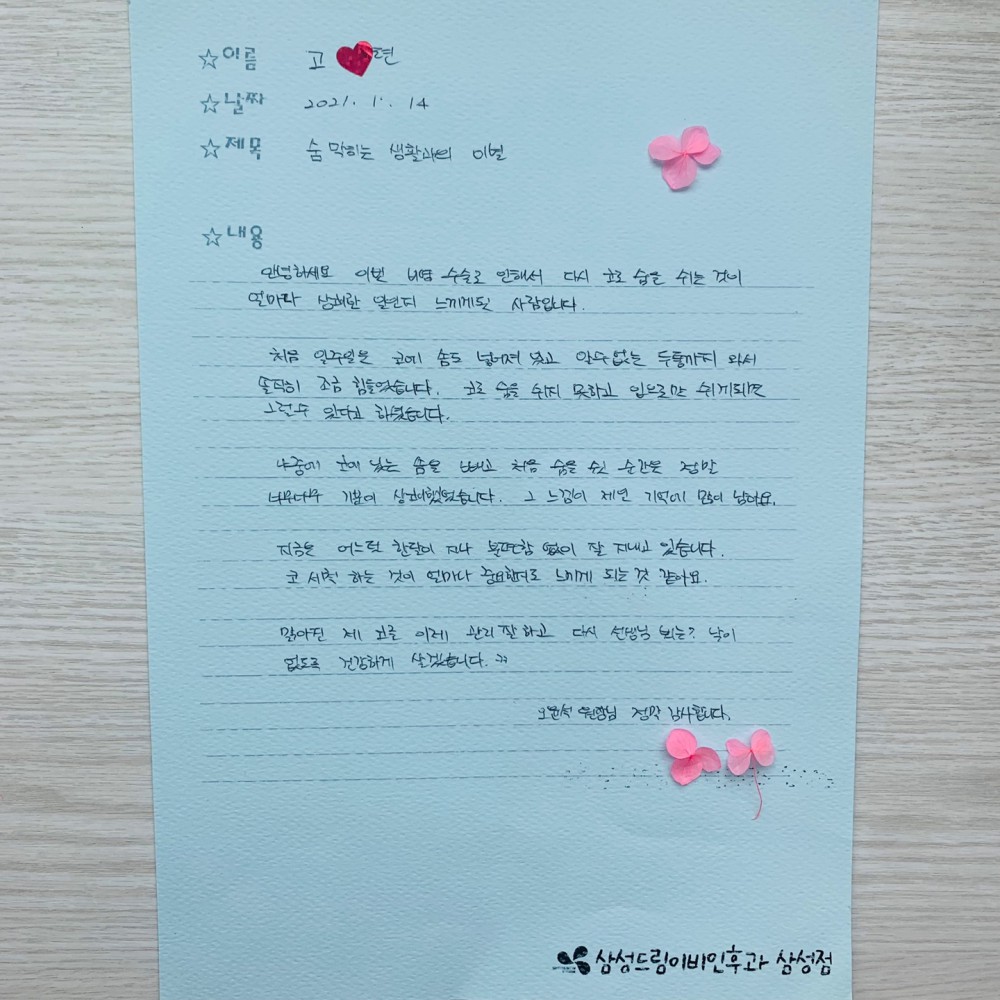 ☆이름 고 현
☆날짜 2021. 1. 14
☆제목 숨 막히는 생활과의 이별
☆내용
안녕하세요 이번 비염 수술로 인해서 다시 코로 숨을 쉬는 것이
얼마나 상쾌한 일인지 느끼게된 사람입니다.
처음 일주일은 코에 솜도 넣어져 있고 알수없는 두통까지 와서
솔직히 조금 힘들었습니다. 코로 숨을 쉬지 못하고 입으로만 쉬게되면
그럴수 있다고 하셨습니다.
나중에 코에 있는 솜을 빼고 처음 숨을 쉰 순간은 정말
너무너무 기분이 상쾌했었습니다. 그 느낌이 제연 기억에 많이 남아요.
지금은 어느덧 한달이 지나 불편함 없이 잘 지내고 있습니다.
코 세척 하는 것이 얼마나 중요한지도 느끼게 되는것 같아요.
맑아진 제 코를 이제 관리 잘하고 다시 선생님 뵈는? 날이
없도록 건강하게 살겠습니다. ㅋㅋ
오윤석 원장님 정말 감사합니다.
삼성드림이비인후과 삼성점